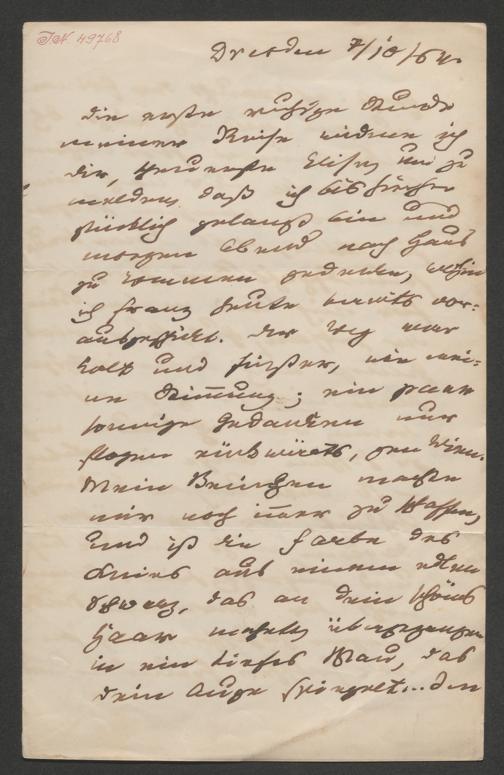 IN 49768
Dresden 7/10/64.
Die erste ruhige Stunde
meiner Reise widme ich
Dir, theuerste Elise, um zu
melden, daß ich bis hierher
glücklich gelangt bin und
morgen Abend nach Haus
zu kommen gedenke, wohin
ich Franz heute bereits vor-
ausgeschickt. Der Weg war
kalt und finster, wie mei-
ne Stimmung; ein paar
sonnige Gedanken nur
flogen rückwärts, gen Wien.
Mein Beinchen machte
mir noch immer zu schaffen,
und ist die Farbe des
Knies aus einem edlen
Schwarz, das an Dein schönes
Haar mahnt, übergegangen
in ein tiefes Blau, das
Dein Auge spiegelt... Den